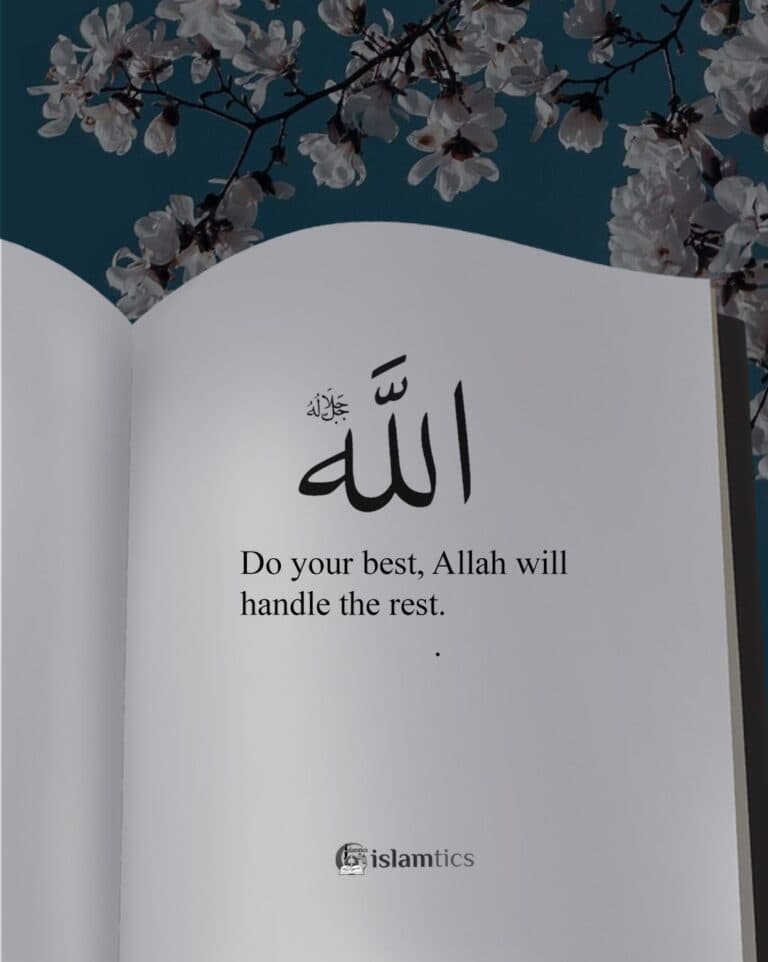 الله
جَلَّ جَلَالُهُ
Do your best, Allah will
handle the rest.
.
islamtics